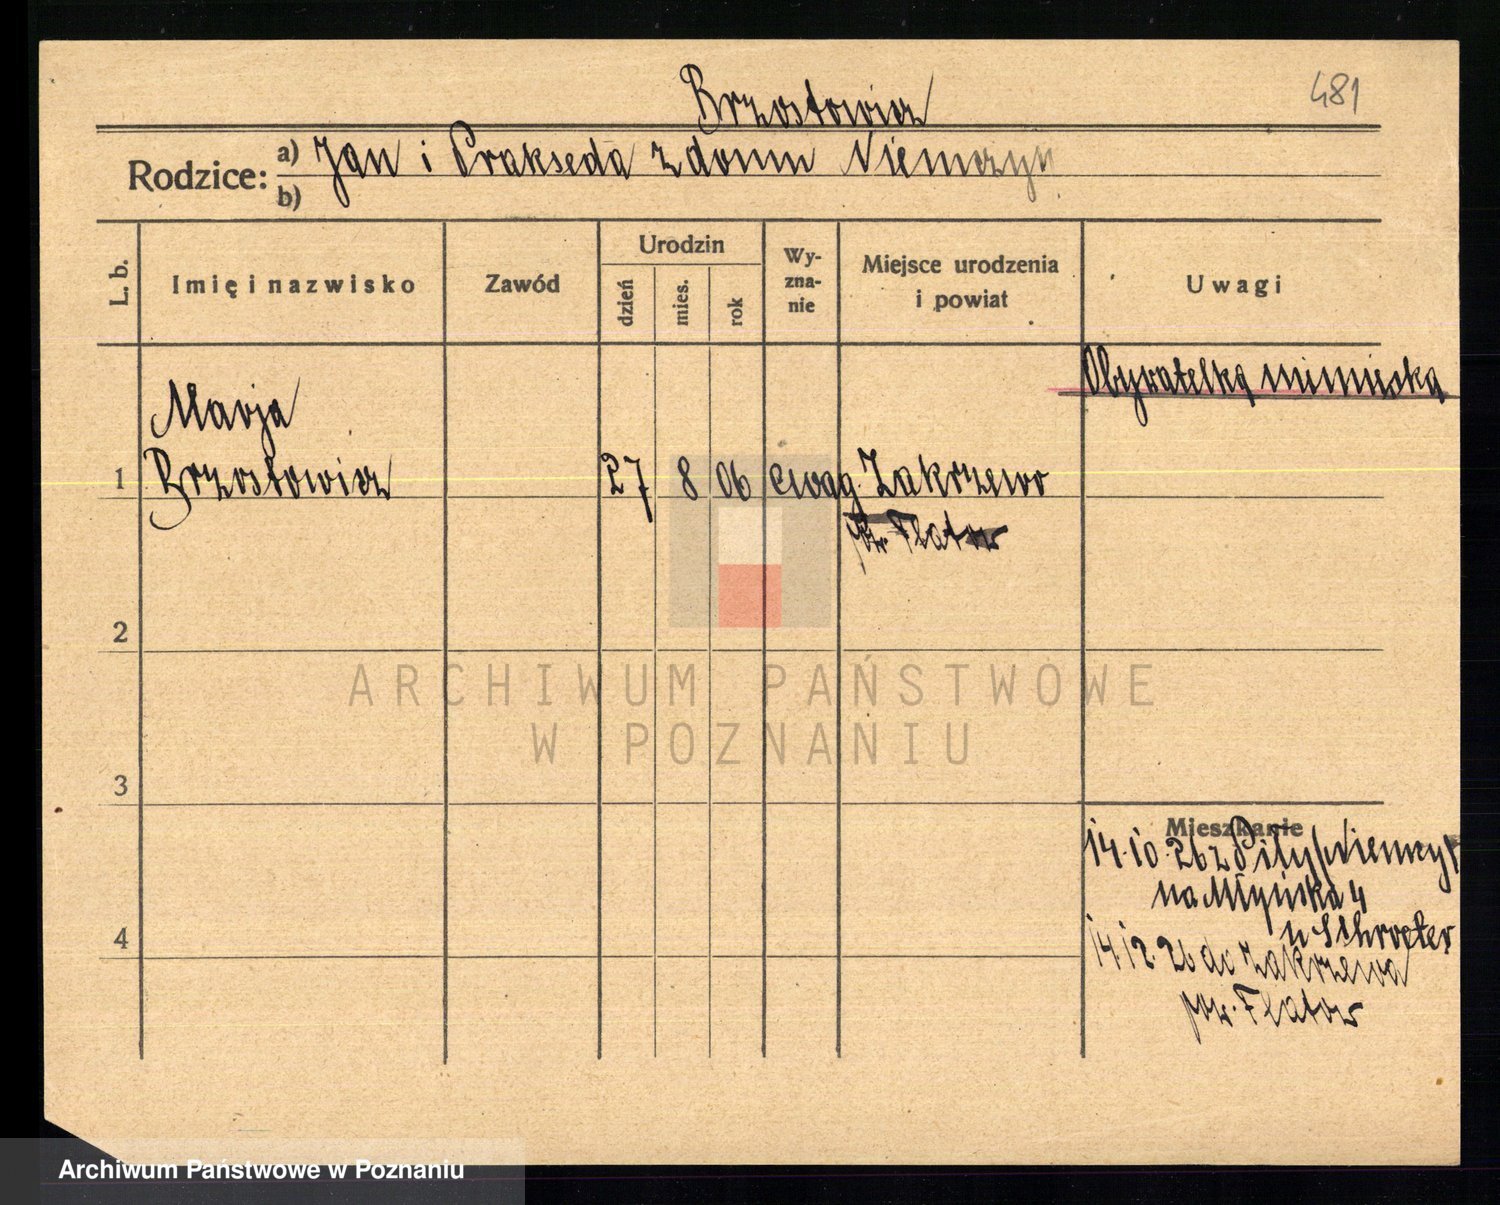 481
Brzostowicz
Rodzice: a) Jan i Prakseda z domu Niemczyk
b)
L. b.
Imię i nazwisko
Zawód
Urodzin
dzień
mies.
rok
Wy-
zna-
nie
Miejsce urodzenia
i powiat
Uwagi
Obywatelka niemiecka
Marja
1 Brzostowicz 27 8 06 ewag. Zakrzewo
pow. Flatow
2
3
4
Mieszkanie
14.10.26 z Piły/Niemcy/
na Młyńska 4
u Schroeter
14.12.26 do Zakrzewa
pow. Flatow
ARCHIWUM PAŃSTWOWE
W POZNANIU
Archiwum Państwowe w Poznaniu